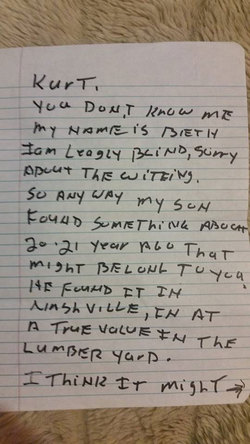 Kurt.
You Don,t Know me
my name is Beth
I am Leagly Blind, sorry
About the writeing.
So Any way my son
Found something About
20-21 year Ago that
might Belong To you?
He Found it in
Nashville, IN At
A True Value in the
Lumber yard.
I Think It might →